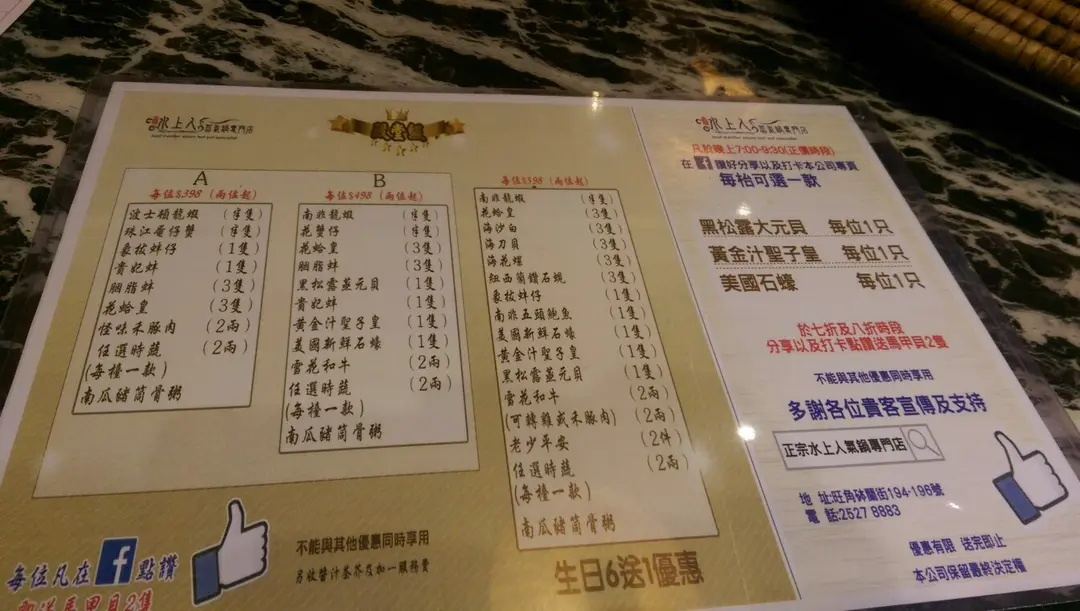 水上人蒸氣鍋專門店
A
每位$398 (兩位起)
波士頓龍蝦 (半隻)
珠江膏仔蟹 (半隻)
象拔蚌仔 (1隻)
貴妃蚌 (1隻)
胭脂蚌 (3隻)
花蛤皇 (3隻)
怪味禾豚肉 (2兩)
任選時蔬 (2兩)
(每檯一款)
南瓜豬筒骨粥
B
每位$498 (兩位起)
南非龍蝦 (半隻)
花蟹仔 (半隻)
花蛤皇 (3隻)
胭脂蚌 (3隻)
黑松露蒸元貝 (1隻)
貴妃蚌 (1隻)
黃金汁聖子皇 (1隻)
美國新鮮石蠔 (1隻)
雪花和牛 (2兩)
任選時蔬 (2兩)
(每檯一款)
南瓜豬筒骨粥
每位$598 (兩位起)
南非龍蝦 (半隻)
花蛤皇 (3隻)
海沙白 (3隻)
海刀貝 (3隻)
海花螺 (3隻)
紐西蘭鑽石蜆 (3隻)
象拔蚌仔 (1隻)
南非五頭鮑魚 (1隻)
美國新鮮石蠔 (1隻)
黃金汁聖子皇 (1隻)
黑松露蒸元貝 (1隻)
雪花和牛 (2兩)
(可轉雞或禾豚肉) (2兩)
老少平安 (2件)
任選時蔬 (2兩)
(每檯一款)
南瓜豬筒骨粥
每位凡在f點讚
即送馬甲貝2隻
不能與其他優惠同時享用
另收醬汁茶芥及加一服務費
生日6送1優惠
水上人蒸氣鍋專門店
凡於晚上7:00-9:30(正價時段)
在f讚好分享以及打卡本公司專頁
每枱可選一款
黑松露大元貝 每位1只
黃金汁聖子皇 每位1只
美國石蠔 每位1只
於七折及八折時段
分享以及打卡點讚送馬甲貝2隻
不能與其他優惠同時享用
多謝各位貴客宣傳及支持
正宗水上人氣鍋專門店
地 址:旺角砵蘭街194-196號
電 話:2527 8883
優惠有限 送完即止
本公司保留最終決定權